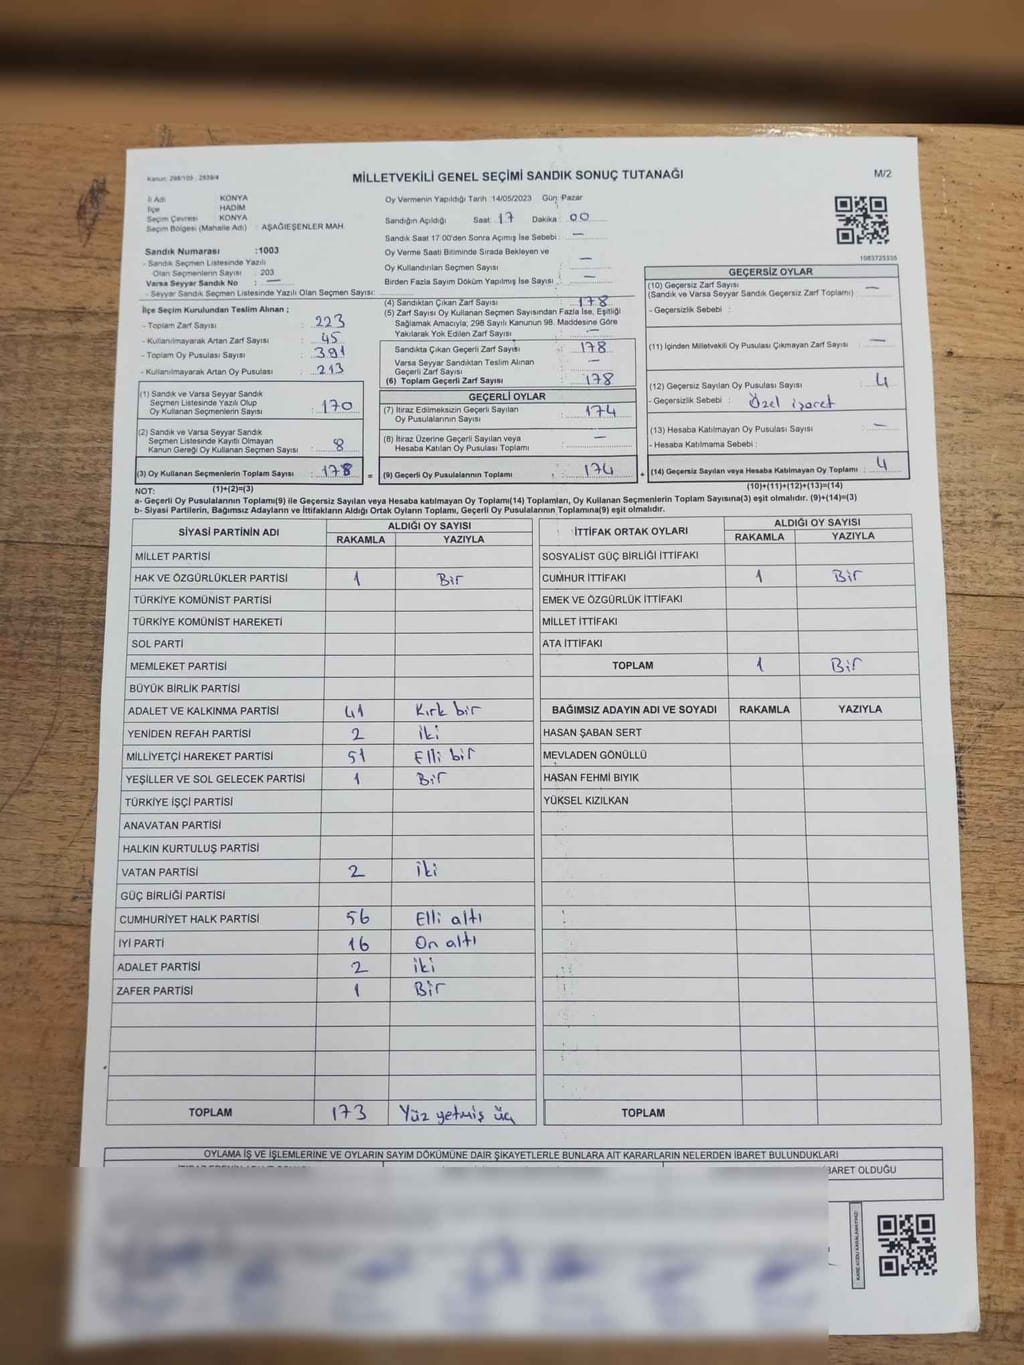 Kanun: 298/105 , 2839/4
MİLLETVEKİLİ GENEL SEÇİMİ SANDIK SONUÇ TUTANAĞI
M/2
İl Adı KONYA
İlçe HADİM
Seçim Çevresi KONYA
Seçim Bölgesi (Mahalle Adı) : AŞAĞIEŞENLER MAH.
Sandık Numarası :1003
- Sandık Seçmen Listesinde Yazılı
Olan Seçmenlerin Sayısı : 203
Varsa Seyyar Sandık No : —
- Seyyar Sandık Seçmen Listesinde Yazılı Olan Seçmen Sayısı:
Oy Vermenin Yapıldığı Tarih :14/05/2023 Gün: Pazar
Sandığın Açıldığı Saat: 17 Dakika: 00
Sandık Saat 17:00'den Sonra Açımış İse Sebebi : —
Oy Verme Saati Bitiminde Sırada Bekleyen ve
Oy Kullandırılan Seçmen Sayısı : —
Birden Fazla Sayım Döküm Yapılmış İse Sayısı : —
1083725335
İlçe Seçim Kurulundan Teslim Alınan ;
- Toplam Zarf Sayısı : 223
- Kullanılmayarak Artan Zarf Sayısı : 45
- Toplam Oy Pusulası Sayısı : 391
- Kullanılmayarak Artan Oy Pusulası : 213
(1) Sandık ve Varsa Seyyar Sandık
Seçmen Listesinde Yazılı Olup
Oy Kullanan Seçmenlerin Sayısı : 170
(2) Sandık ve Varsa Seyyar Sandık
Seçmen Listesinde Kayıtlı Olmayan
Kanun Gereği Oy Kullanan Seçmen Sayısı : 8
(3) Oy Kullanan Seçmenlerin Toplam Sayısı : 178
(4) Sandıktan Çıkan Zarf Sayısı : 178
(5) Zarf Sayısı Oy Kullanan Seçmen Sayısından Fazla İse, Eşitliği
Sağlamak Amacıyla; 298 Sayılı Kanunun 98. Maddesine Göre
Yakılarak Yok Edilen Zarf Sayısı : —
Sandıkta Çıkan Geçerli Zarf Sayısı : 178
Varsa Seyyar Sandıktan Teslim Alınan
Geçerli Zarf Sayısı : —
(6) Toplam Geçerli Zarf Sayısı : 178
GEÇERLİ OYLAR
(7) İtiraz Edilmeksizin Geçerli Sayılan
Oy Pusulalarının Sayısı : 174
(8) İtiraz Üzerine Geçerli Sayılan veya
Hesaba Katılan Oy Pusulası Toplamı : —
= (9) Geçerli Oy Pusulalarının Toplamı : 174
GEÇERSİZ OYLAR
(10) Geçersiz Zarf Sayısı : —
(Sandık ve Varsa Seyyar Sandık Geçersiz Zarf Toplamı)
- Geçersizlik Sebebi :
(11) İçinden Milletvekili Oy Pusulası Çıkmayan Zarf Sayısı : —
(12) Geçersiz Sayılan Oy Pusulası Sayısı : 4
- Geçersizlik Sebebi : Özel işaret
(13) Hesaba Katılmayan Oy Pusulası Sayısı : —
- Hesaba Katılmama Sebebi :
+ (14) Geçersiz Sayılan veya Hesaba Katılmayan Oy Toplamı : 4
NOT: (1)+(2)=(3) (10)+(11)+(12)+(13)=(14)
a- Geçerli Oy Pusulalarının Toplamı(9) ile Geçersiz Sayılan veya Hesaba katılmayan Oy Toplamı(14) Toplamları, Oy Kullanan Seçmenlerin Toplam Sayısına(3) eşit olmalıdır. (9)+(14)=(3)
b- Siyasi Partilerin, Bağımsız Adayların ve İttifakların Aldığı Ortak Oyların Toplamı, Geçerli Oy Pusulalarının Toplamına(9) eşit olmalıdır.
SİYASİ PARTİNİN ADI ALDIĞI OY SAYISI
RAKAMLA YAZIYLA
MİLLET PARTİSİ
HAK VE ÖZGÜRLÜKLER PARTİSİ 1 Bir
TÜRKİYE KOMÜNİST PARTİSİ
TÜRKİYE KOMÜNİST HAREKETİ
SOL PARTİ
MEMLEKET PARTİSİ
BÜYÜK BİRLİK PARTİSİ
ADALET VE KALKINMA PARTİSİ 41 Kırk bir
YENİDEN REFAH PARTİSİ 2 İki
MİLLİYETÇİ HAREKET PARTİSİ 51 Elli bir
YEŞİLLER VE SOL GELECEK PARTİSİ 1 Bir
TÜRKİYE İŞÇİ PARTİSİ
ANAVATAN PARTİSİ
HALKIN KURTULUŞ PARTİSİ
VATAN PARTİSİ 2 İki
GÜÇ BİRLİĞİ PARTİSİ
CUMHURİYET HALK PARTİSİ 56 Elli altı
İYİ PARTİ 16 On altı
ADALET PARTİSİ 2 İki
ZAFER PARTİSİ 1 Bir
TOPLAM 173 Yüz yetmiş üç
İTTİFAK ORTAK OYLARI ALDIĞI OY SAYISI
RAKAMLA YAZIYLA
SOSYALİST GÜÇ BİRLİĞİ İTTİFAKI
CUMHUR İTTİFAKI 1 Bir
EMEK VE ÖZGÜRLÜK İTTİFAKI
MİLLET İTTİFAKI
ATA İTTİFAKI
TOPLAM 1 Bir
BAĞIMSIZ ADAYIN ADI VE SOYADI RAKAMLA YAZIYLA
HASAN ŞABAN SERT
MEVLADEN GÖNÜLLÜ
HASAN FEHMİ BIYIK
YÜKSEL KIZILKAN
TOPLAM
OYLAMA İŞ VE İŞLEMLERİNE VE OYLARIN SAYIM DÖKÜMÜNE DAİR ŞİKAYETLERLE BUNLARA AİT KARARLARIN NELERDEN İBARET BULUNDUKLARI
İBARET OLDUĞU